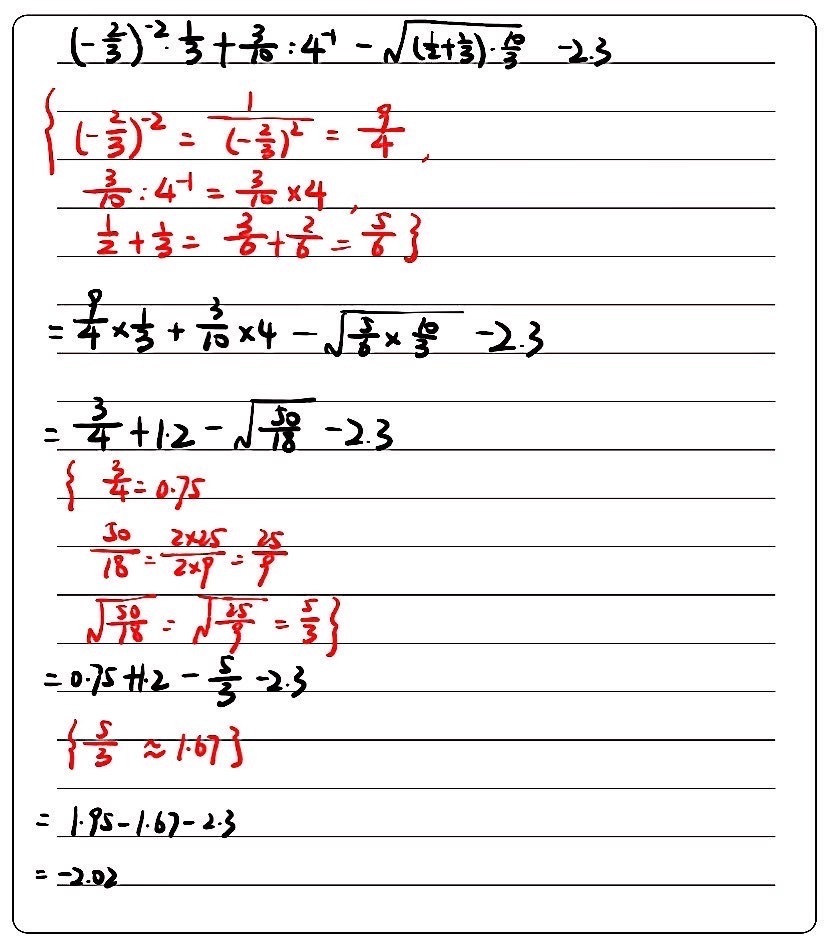 (-2/3)^-2 · 1/3 + 3/10 : 4^-1 - √((1/2+1/3)·10/3) -2.3
{(-2/3)^-2 = 1/(-2/3)^2 = 9/4,
3/10 : 4^-1 = 3/10 ×4,
1/2 + 1/3 = 3/6 + 2/6 = 5/6}
= 9/4 × 1/3 + 3/10 ×4 - √(5/6 × 10/3) -2.3
= 3/4 + 1.2 - √(50/18) -2.3
{3/4 = 0.75
50/18 = 2×25/2×9 = 25/9
√(50/18) = √(25/9) = 5/3}
= 0.75 + 1.2 - 5/3 -2.3
{5/3 ≈ 1.67}
= 1.95 - 1.67 - 2.3
= -2.02